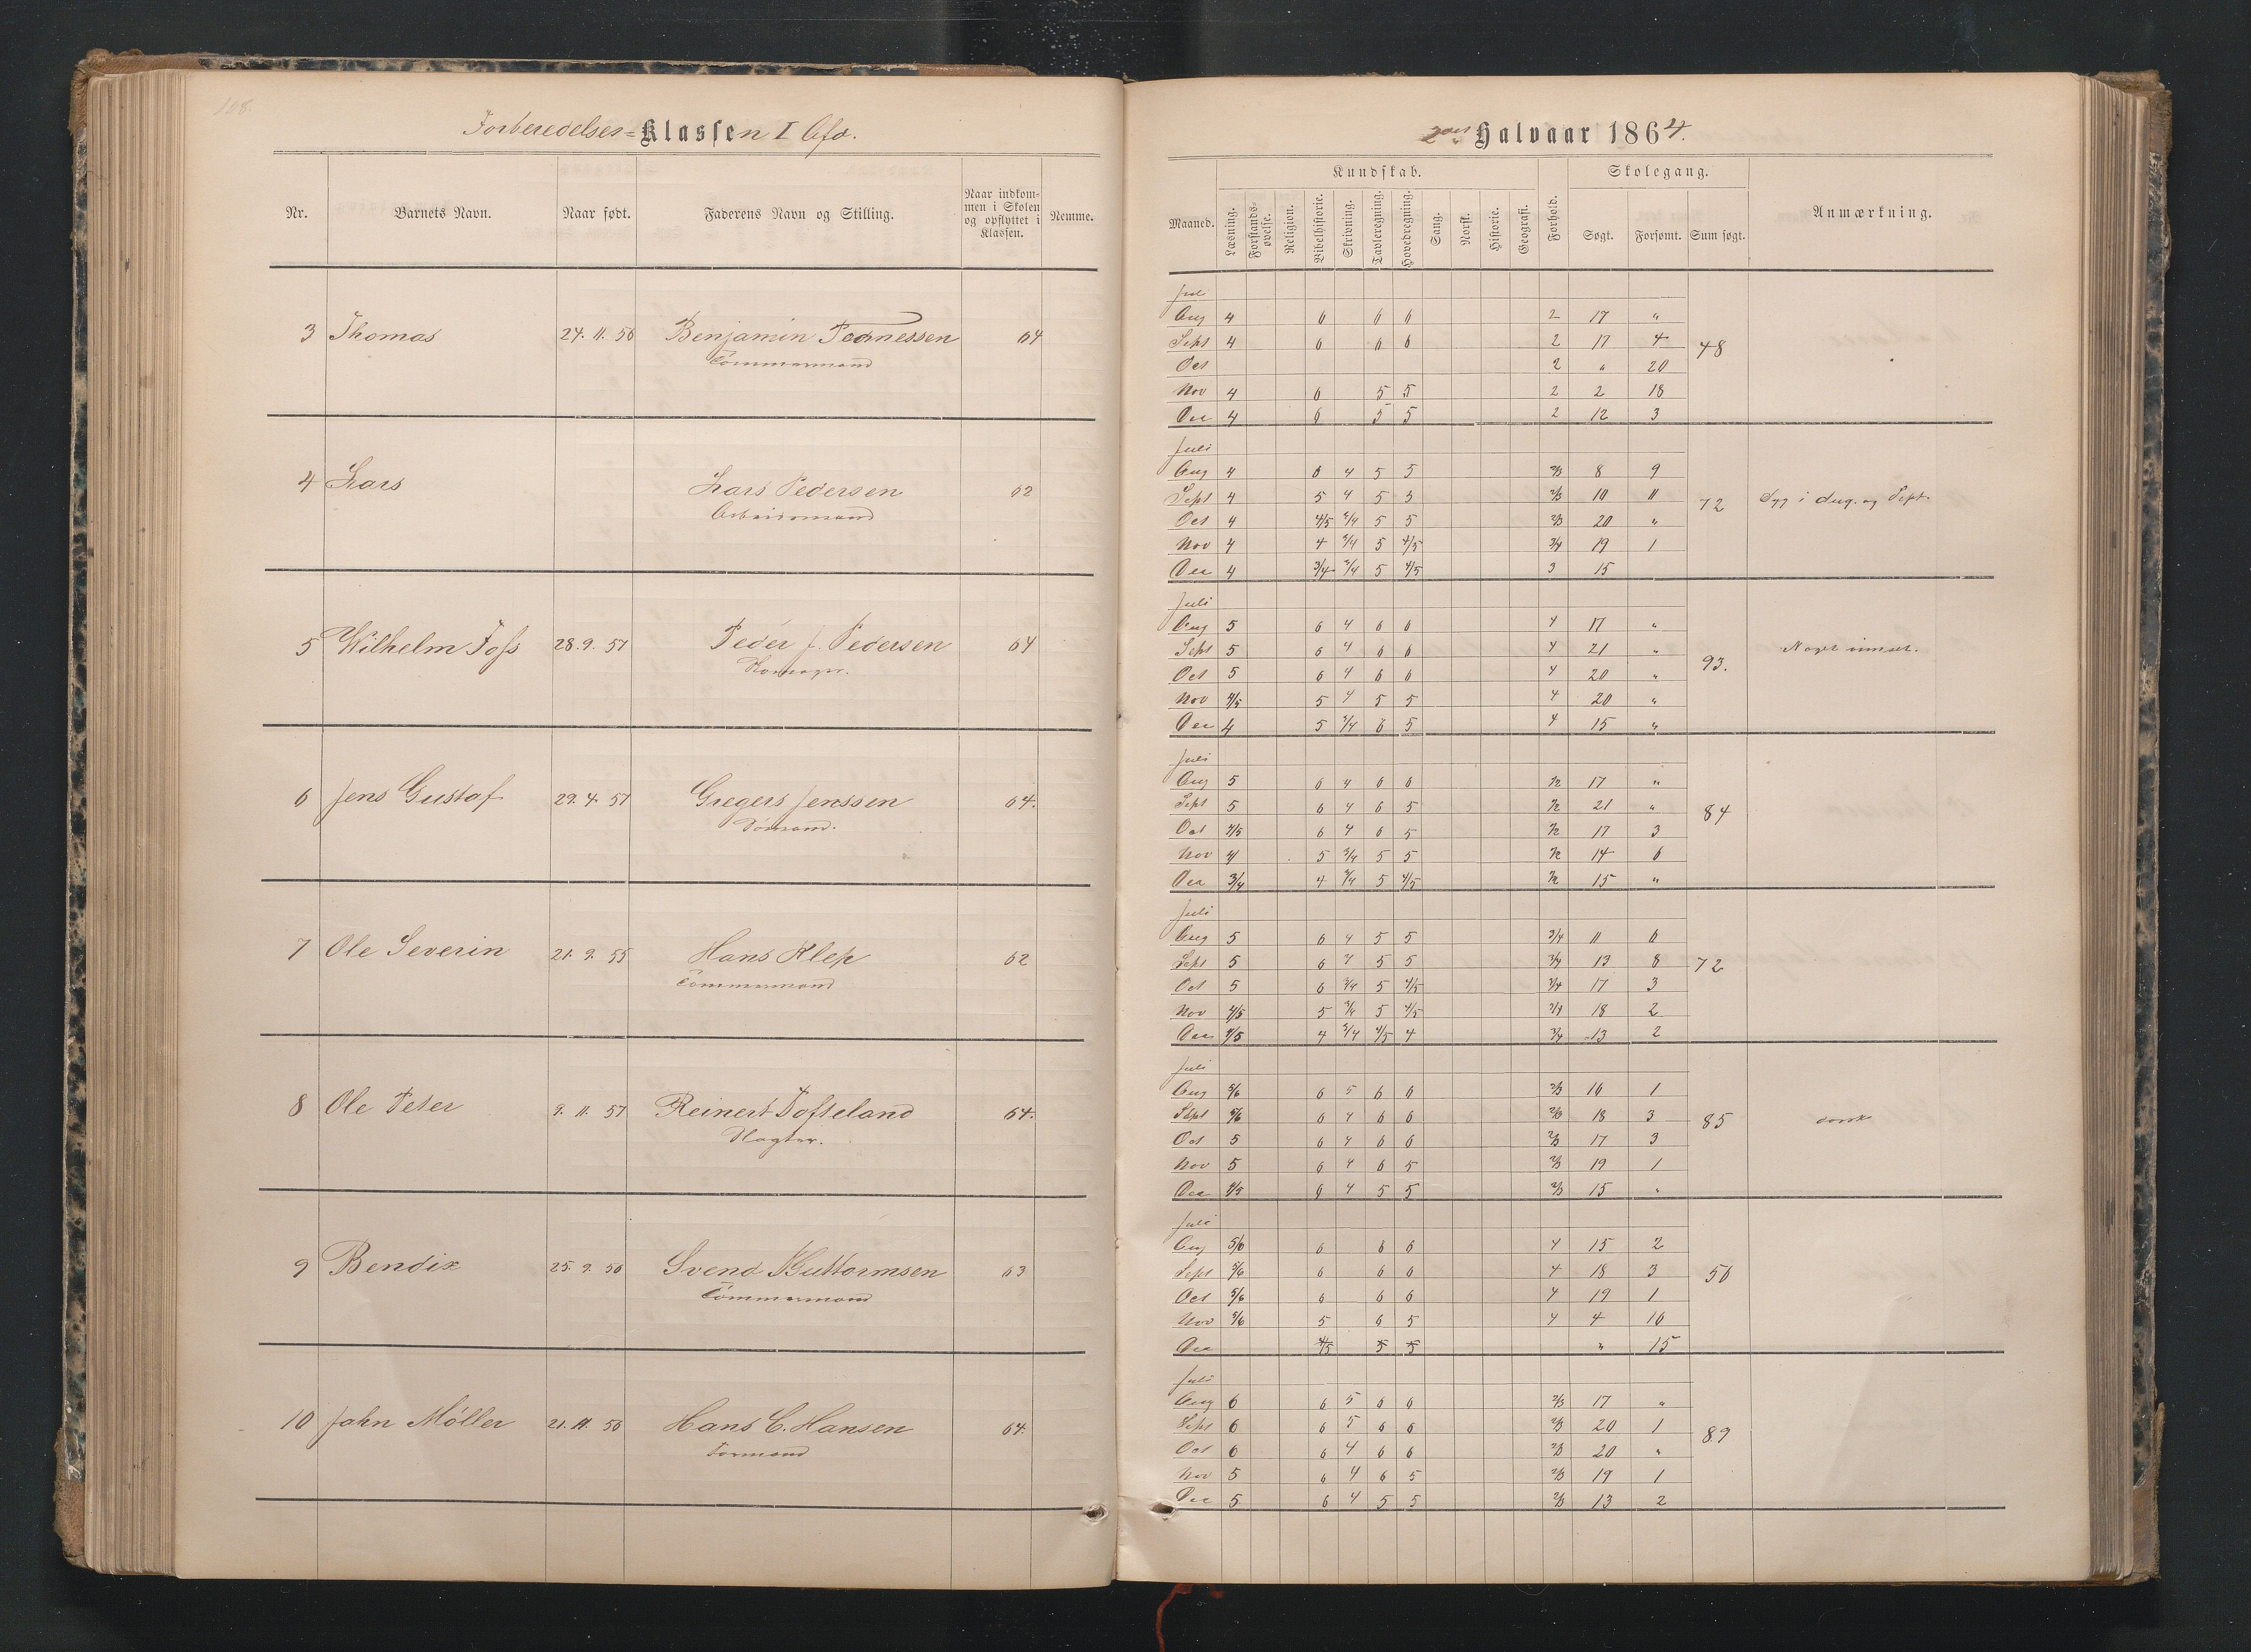 168.
Forberedelses=Klassen I Afd.
Nr. Barnets Navn. Naar født. Faderens Navn og Stilling. Naar indkommen i Skolen og opflyttet i Klassen. Nemme.
3 Thomas 24. 11. 56 Benjamin 64
Tömmermand
4 Lars Lars Pedersen 62
Arbeidsmand
5 Wilhelm Foss 28. 9. 57 Peder J. Pedersen 64
6 Jens Gustaf 29. 4. 57 Gregers Jenssen 64.
Sömand.
7 Ole Severin 21. 9. 55 Hans Klep 62
Tömmermand
8 Ole Peter 9. 11. 57 Reinert Tofteland 64.
Slagter.
9 Bendix 25. 9. 56 Svend Guttormsen 63
Tömmermand
10 Jahn Möller 21. 11. 56 Hans C. Hansen 64.
Formand
2det Halvaar 1864.
Kundskab. Skolegang.
Maaned. Læsning. Forstands-øvelse. Religion. Bibelhistorie. Skrivning. Tavleregning. Hovedregning. Sang. Norsk. Historie. Geografi. Forhold. Søgt. Forsømt. Sum søgt. Anmærkning.
Juli
Aug 4 6 6 6 2 17 "
Sept 4 6 6 6 2 17 4 48
Oct 2 " 20
Nov 4 6 5 5 2 2 18
Dec 4 6 5 5 2 12 3
Juli
Aug 4 6 4 5 5 2/3 8 9
Sept 4 5 4 5 5 2/3 10 11 72 Syg i Aug. og Sept.
Oct 4 4/5 3/4 5 5 2/3 20 "
Nov 4 4 3/4 5 4/5 3/4 19 1
Dec 4 3/4 3/4 5 4/5 3 15
Juli
Aug 5 6 4 6 6 4 17 "
Sept 5 6 4 6 6 4 21 " 93. Noget
Oct 5 6 4 6 6 4 20 "
Nov 4/5 5 4 5 5 4 20 "
Dec 4 5 3/4 6 5 4 15 "
Juli
Aug 5 6 4 6 6 1/2 17 "
Sept 5 6 4 6 5 1/2 21 " 84
Oct 4/5 6 4 6 5 1/2 17 3
Nov 4 5 3/4 5 5 1/2 14 6
Dec 3/4 4 3/4 5 4/5 1/2 15 "
Juli
Aug 5 6 4 5 5 3/4 11 6
Sept 5 6 4 5 5 3/4 13 8 72
Oct 5 6 3/4 5 4/5 3/4 17 3
Nov 4/5 5 3/4 5 4/5 3/4 18 2
Dec 4/5 4 3/4 4/5 4 3/4 13 2
Juli
Aug 5/6 6 5 6 6 2/3 16 1
Sept 5/6 6 4 6 6 2/3 18 3 85 dorsk
Oct 5 6 4 6 6 2/3 17 3
Nov 5 6 4 6 5 2/3 19 1
Dec 4/5 6 4 5 5 2/3 15 "
Juli
Aug 5/6 6 6 6 4 15 2
Sept 5/6 6 6 6 4 18 3 56
Oct 5/6 6 6 6 4 19 1
Nov 5/6 5 6 5 4 4 16
Dec 4/5 5 5 " 15
Juli
Aug 6 6 5 6 6 2/3 17 "
Sept 6 6 5 6 6 2/3 20 1 89
Oct 6 6 4 6 6 2/3 20 "
Nov 5 6 4 6 5 2/3 19 1
Dec 5 6 4 5 5 2/3 13 2